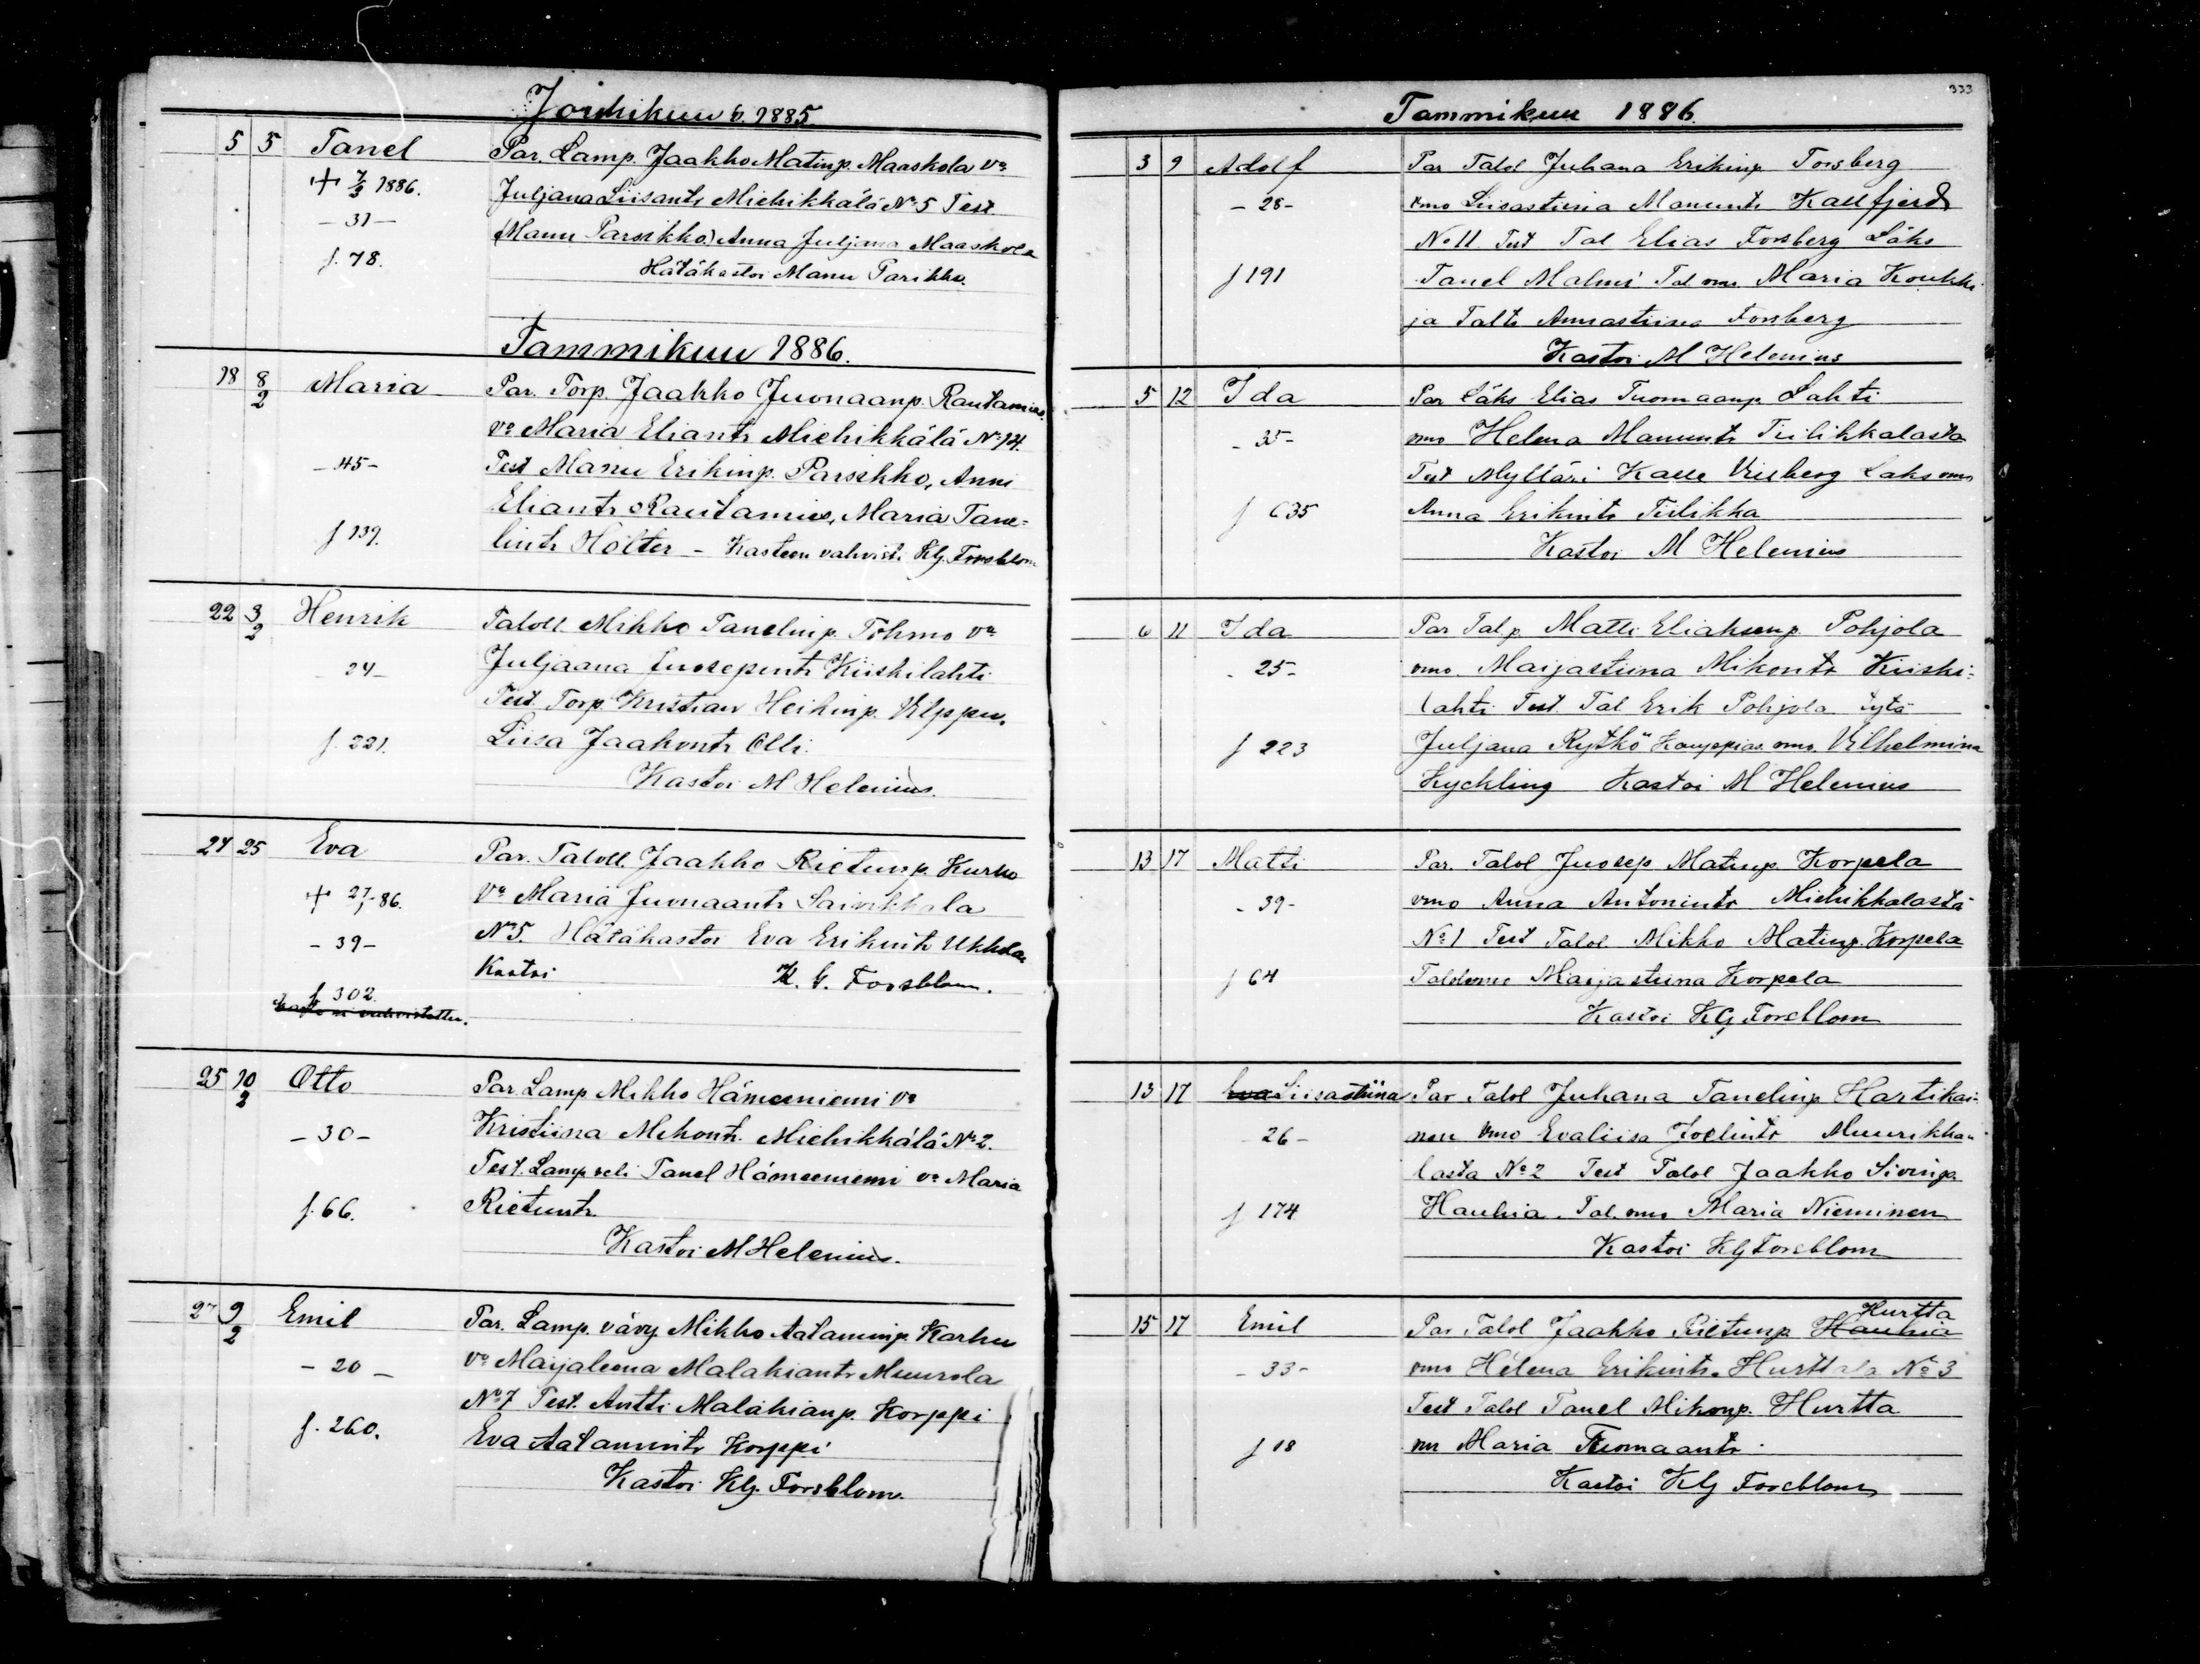 Joulukuu 6. 1885
5 5 Tanel Par. Lamp. Jaakko Matinp. Maaskola vo
+ 7/3 1886. Juljana Liisantr Miehikkälä No 5 Test.
- 31 - Manu Parsikko, Anna Juljana Maaskola
f. 78. Hätäkastoi Manu Parikka.
Tammikuu 1886.
18 8/2 Maria Par. Torp. Jaakko Juonaanp. Rautamies
vo Maria Eliantr Miehikkälä No 14.
- 45 - Test Manu Erikinp. Parsikko, Anni
Eliantr Rautamies, Maria Tane-
f 139. lintr Hölter - Kasteen vahvisti KG. Forsblom
22 3/2 Henrik Taloll. Mikko Tanelinp. Töhmo vo
- 24 - Juljaana Juosepintr Kiiskilahti
Test. Torp. Kristian Heikinp. Ulppu.
f. 221. Liisa Jaakontr Olli.
Kastoi M Helenius.
24 25 Eva Par. Taloll. Jaakko Rietunp. Kurko
+ 27/1-86. Vo Maria Juonaantr Saivikkala
- 39 - No 5. Hätäkastoi Eva Erikintr Ukkola
Kastoi K. G. Forsblom.
f. 302.
25 10/2 Otto Par Lamp Mikko Hämeeniemi vo
- 30 - Kristiina Mikontr. Miehikkälä No 2.
Test. Lamp veli Tanel Hämeeniemi vo Maria
f. 66. Rietuntr.
Kastoi M Helenius.
27 9/2 Emil Par. Lamp. vävy Mikko Aataminp. Karhu
- 20 - Vo Maijaleena Malakiantr Muurola
No 7 Test. Antti Malakianp. Korppi
f. 260. Eva Aatamintr Korppi
Kastoi KG. Forsblom.
333
Tammikuu 1886.
3 9 Adolf Par Talol Juhana Erikinp Forsberg
- 28 - vmo Liisastiina Manuntr Kallfjerd
No 11 Test Tal Elias Forsberg Läks
f 191 Tanel Malmi Tal vmo. Maria Koukki
ja Taltr Annastiina Forsberg
Kastoi M Helenius
5 12 Ida Par Läks Elias Tuomaanp. Lahti
- 35 - vmo Helena Manuntr Tiilikkalasta
Test Mylläri Kalle Vrisberg Läks vmo
f 635 Anna Erikintr Tiilikka
Kastoi M Helenius
6 11 Ida Par Tal.p. Matti Eliaksenp. Pohjola
- 25 - vmo. Maijastiina Mikontr Kiiski-
lahti Test. Tal Erik Pohjola tytö
f 223 Juljana Rytkö Kauppias. vmo. Vilhelmina
Kyckling Kastoi M Helenius
13 17 Matti Par. Talol Juosep Matinp. Korpela
- 39 - vmo Anna Antonintr Miehikkalasta
No 1 Test Talol Mikko Matinp. Korpela
f 64 Maijastiina Korpela
Kastoi KG Forsblom
13 17 Eva Liisastiina Par Talol Juhana Tanelinp Hartikai-
- 26 - nen Vmo Evaliisa Joelintr Muurikka-
lasta No 2 Test Talol Jaakko
f 174 Hauhia. Tal. vmo Maria Nieminen
Kastoi KG Forsblom
Hurtta
15 17 Emil Par Talol Jaakko Rietunp. Hauhia
- 33 - vmo Helena Erikintr. Hurttala No 3
Test Talol Tanel Mikonp. Hurtta
f 18 vm Maria Tuomaantr.
Kastoi KG Forsblom